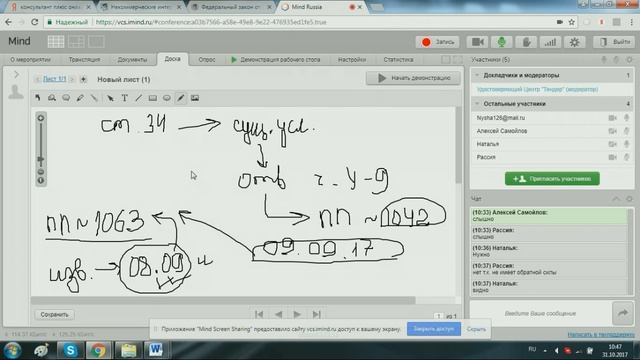 консультант плюс онла
Некоммерческие интер
Федеральный закон от
Mind Russia
Надежный
https://vcs.imind.ru/#conference:a03b7566-a58e-49e8-9e22-476935ed1fe5.true
Mind
Запись
О мероприятии
Трансляция
Документы
Доска
Опрос
Демонстрация рабочего стола
Настройки
Статистика
Участники (5)
Лист 1/1
Новый лист (1)
Начать демонстрацию
Докладчики и модераторы
Удостоверяющий Центр "Тендер" (модератор)
Остальные участники 4
Nysha126@mail.ru
Алексей Самойлов
Наталья
Рассия
Пригласить участников
ст. 34 → сущ. усл.
отв ч. 4-9
ПП ~ 1042
ПП ~ 1063
09.09.17
изв. → 08.09 и
Чат
(10:33) Алексей Самойлов:
слышно
(10:33) Рассия:
слышно
(10:36) Наталья:
Нужно
(10:37) Рассия:
нет т.к. не имеет обратной силы
(10:37) Наталья:
видно
Введите Ваше сообщение
Сохранить
1 из 1
Написать в техподдержку
Приложение "Mind Screen Sharing" предоставило сайту vcs.imind.ru доступ к вашему экрану.
Закрыть доступ
Скрыть
RU
10:47
31.10.2017